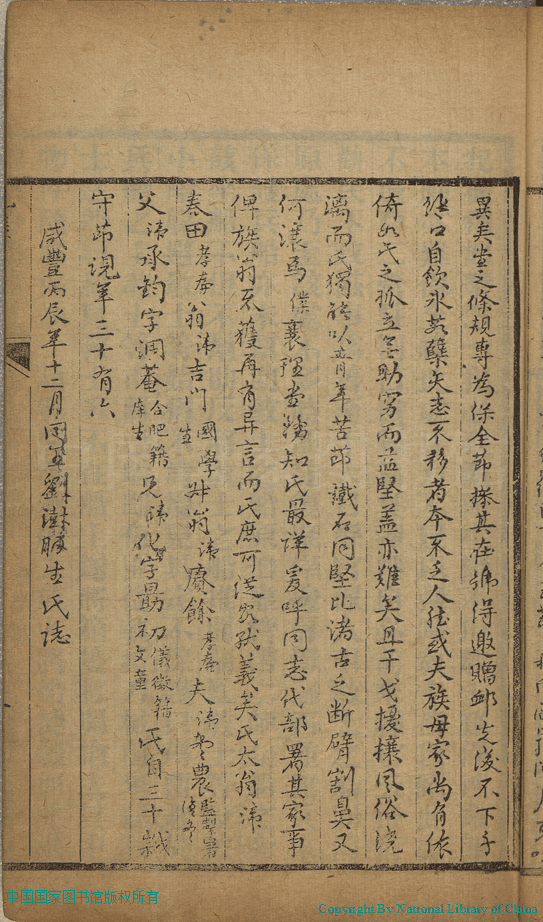 異矣堂之條規專為保全節孀其在飭得邀贈卹先後不下千
餘口自飲冰茹櫱矢志不移者本不乏人然或夫族母家尚有依
倚如氏之孤立無助窮而益堅蓋亦難矣且干戈擾攘風俗澆
漓而氏獨能以青年苦節鐵石同堅比諸古之斷臂割鼻又
何讓焉僕襄理堂務知氏最詳爰呼同志代部署其家事
俾族翁不獲再有異言而氏庶可從容就義矣氏太翁諱
春田孝廉翁諱吉門國學生叔翁諱賡餘孝廉夫諱農監掣署
父諱承鈞字潤菴合肥籍庠生兄諱代字勗初儀徵籍文童氏自三十歲
守節現年三十有六
咸豐丙辰年十二月同里劉澍賑生氏誌
中国国家图书馆版权所有
Copyright By National Library of China